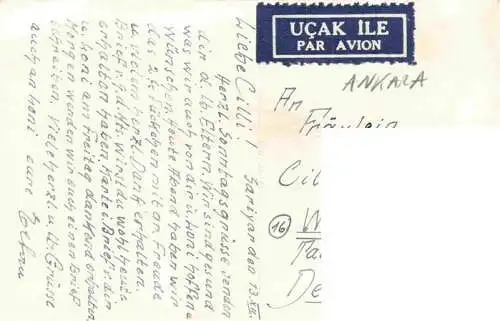 UÇAK İLE
PAR AVION
ANKARA
An
Fräulein
16
Liebe Cilli!
13. XII.
Herzl. Sonntagsgrüsse senden
dir d. lb. Eltern. Wir sind gesund
was wir auch von dir u. honi hoffen u.
wünschen. Heute Abend haben wir
das 2. Päckchen mit gr. Freude
u. vielem herz. Dank erhalten.
Brief v. 9. d. Mts. wirst du wohl heute
erhalten haben. Karte i. Brief v. dir
u. honi am Freitag dankend erhalten.
Morgen werden wir euch einen Brief
schreiben. Viele herzl. u. Grüsse
auch an honi eure Eltern